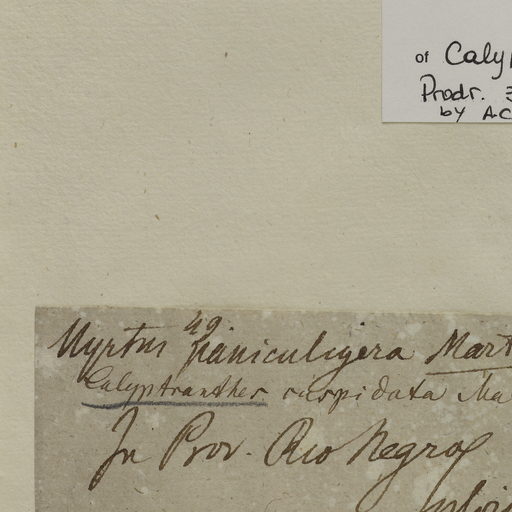 of Caly
Prodr. 3
by A.C
49
Myrtus paniculigera Mart
Calyptranthes cuspidata Ma
In Prov. Rio Negro